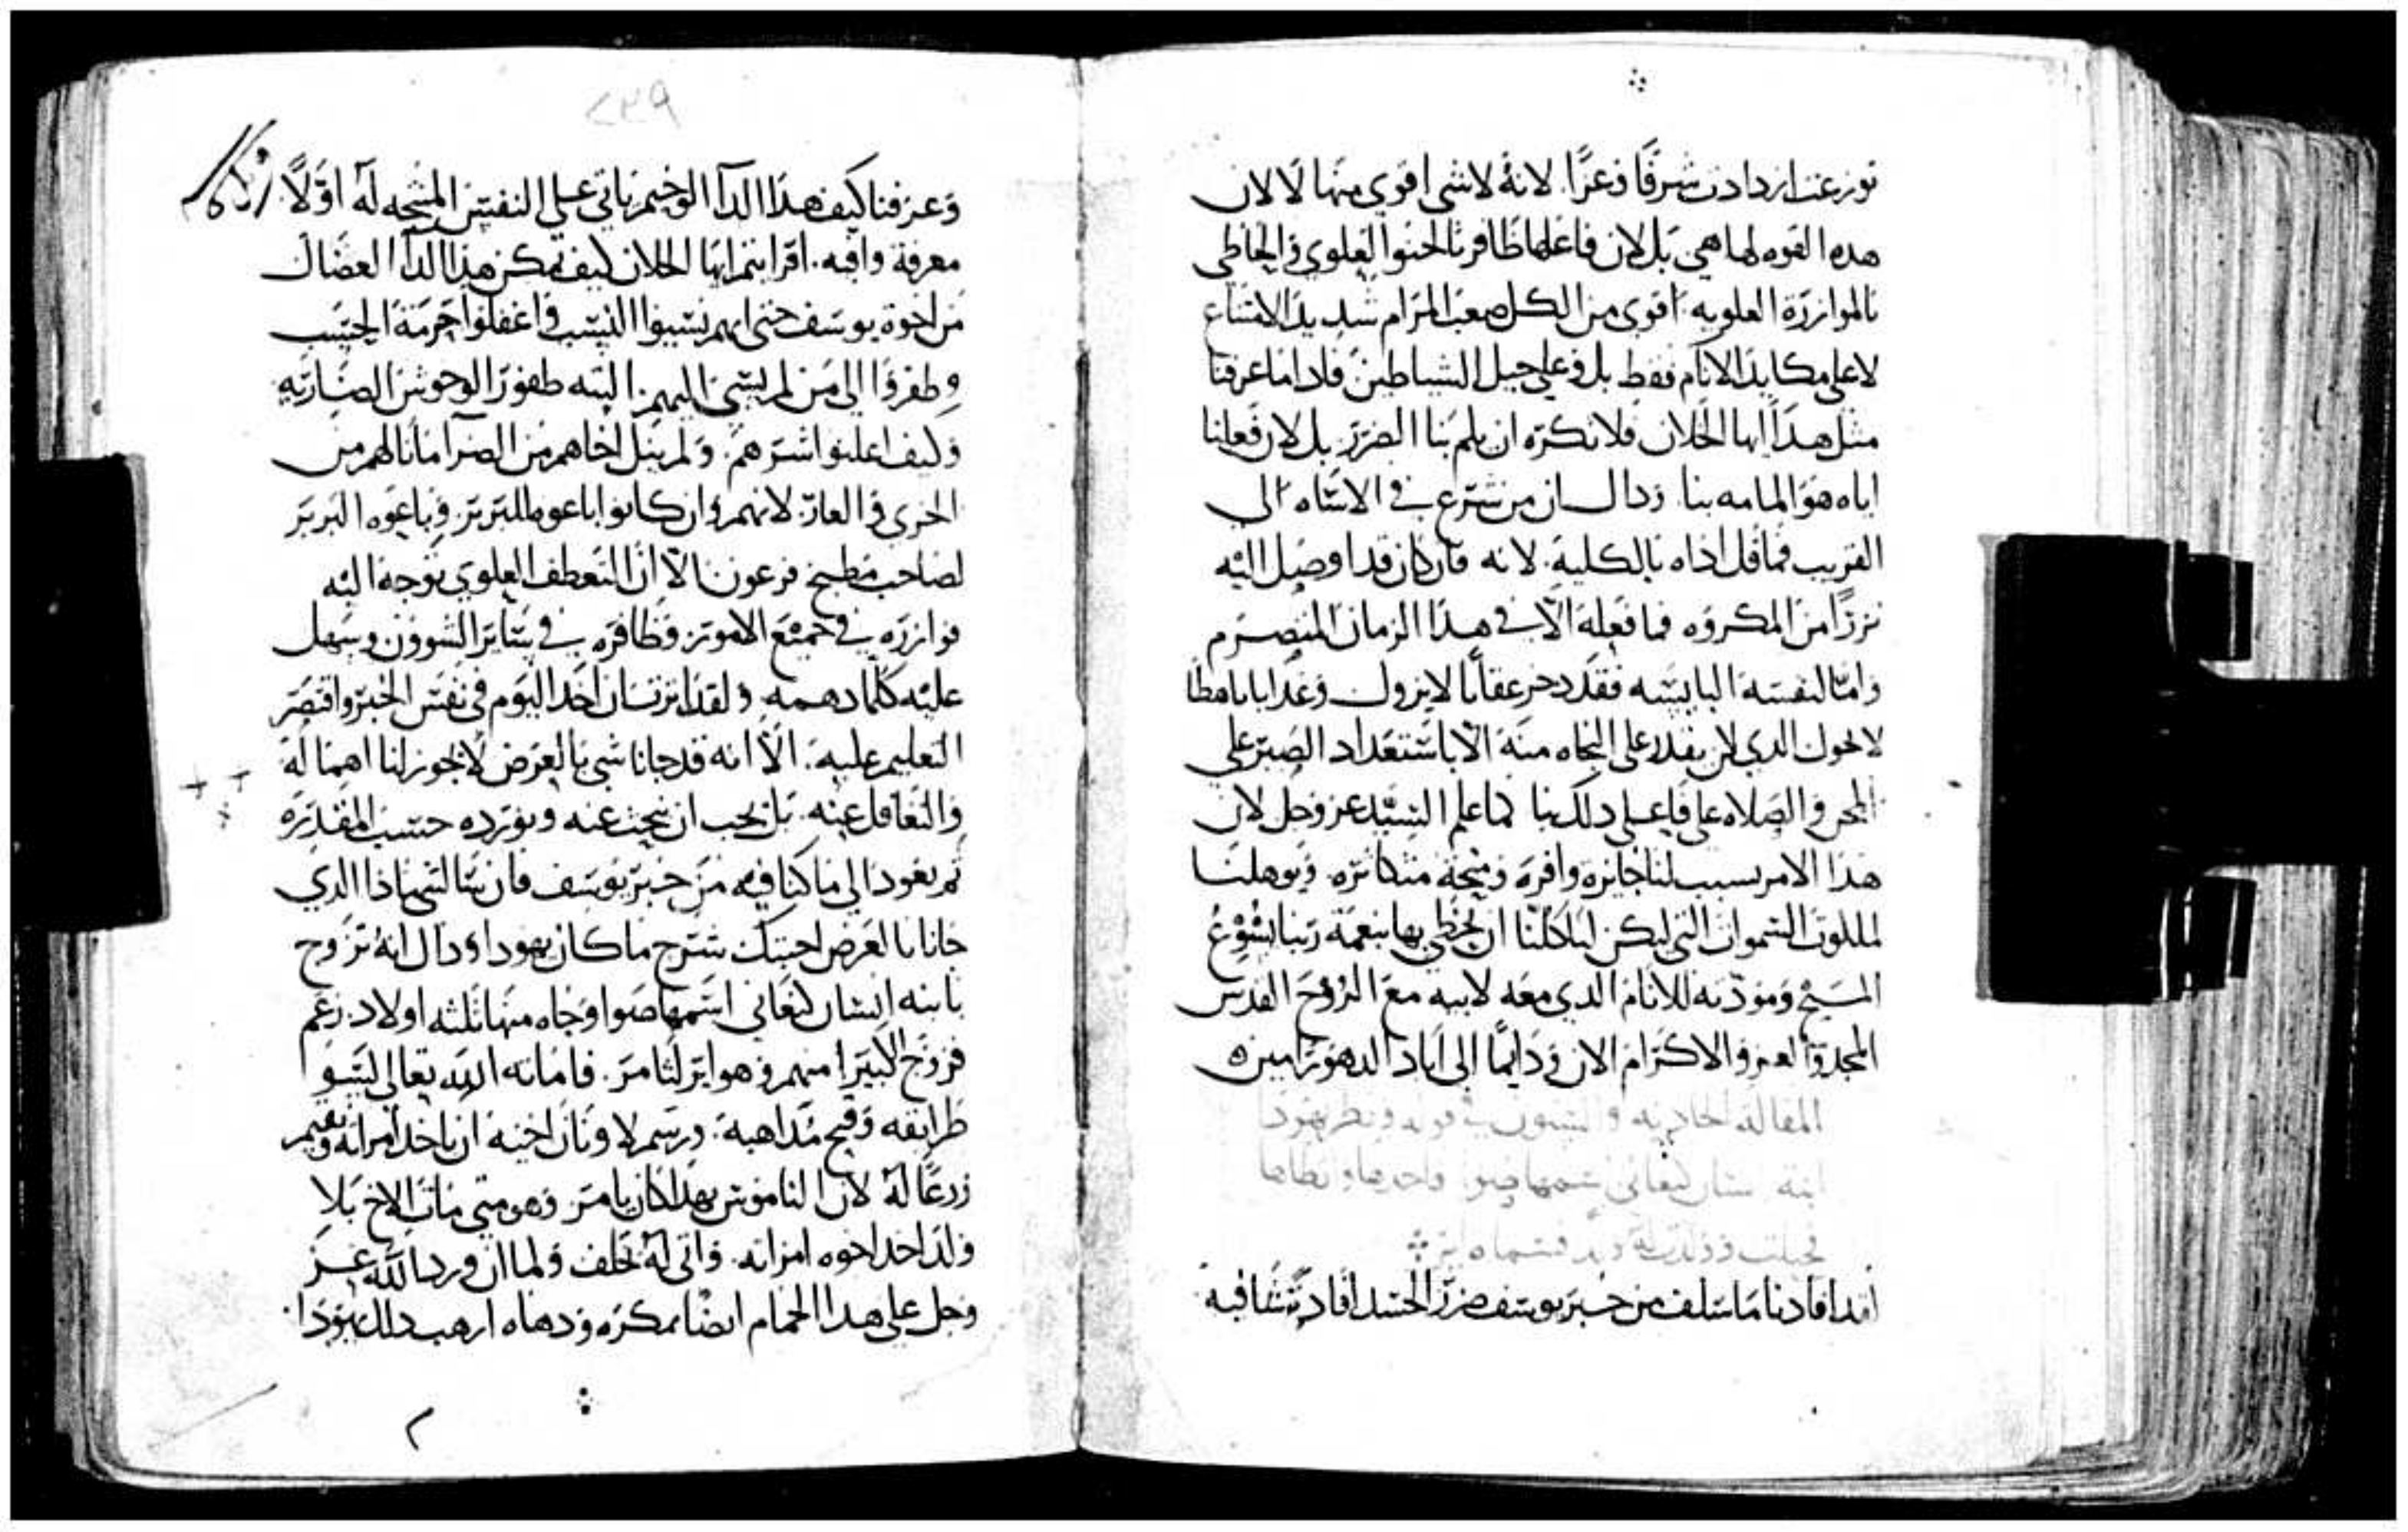 توزعت ازدادت شرفًا وعزًا. لانهُ لا شي اقوي منها لا لان
هده القوه لها هي بل لان فاعلها ظافر بالحنوا العلوي واحاطي
بالموازرة العلويه اقوي من الكل صعب المرام شديد الامتناع
لا علي مكايد الانام فقط بل وعلي حيل الشياطين فادا ما عرفنا
مثل هدا ايها الخلان فلا نكره ان يلم بنا الضرر بل لان فعلنا
اياه هو المامه بنا ودال ان من شرع في الاساه الي
القريب فما قل اداه بالكلية. لانه وان كان قد اوصل اليه
نزرًا من المكروه فما فعله الا في هدا الزمان المنصرم
واما لنفسه البايسه فقد دخر عقابًا لا يزول وعدابا باهظا
لا يحول الدي لن يقدر علي النجاه منه الا باستعداد الصبر علي
المحن والصلاه علي فاعلي دلك بنا كما علم السيد عز وجل لان
هدا الامر يسبب لنا جايزه وافره ومنحة متكاثره. ويوهلنا
لملكوت السموات التي ليكن لنا كلنا ان نحظي بها بنعمة ربنا يشوع
المسيح ومودته للانام الدي معه لابيه مع الروح القدس
المجد والعز والاكرام الان ودايمًا الي اباد الدهور امين
المقاله الحاديه والستون في قوله ونظر يهودا
ابنه انسان كنعاني اسمها صوا واخدها واتطاها
فحبلت وولدت له ولد فسماه اير
لقد افادنا ما سلف من خبر يوسف ضرر الحسد افادة شافيه
٢٣٩
وعرفنا كيف هدا الدآ الوخيم ياتي علي النفس المنتجه له اولًا
معرفة وافيه. اقرايتم ايها الخلان كيف تمكن هدا الدآ العضال
من اخوة يوسف حتي انهم نسيوا النسب واغفلوا حرمة الحسب
وطفروا الي من لم يسي اليهم البته طفور الوحوش الضاريه
وكيف اعلنوا اشرهم. ولم ينل اخاهم من الضر ما نالهم من
الخزي والعار. لانهم وان كانوا باعوه للبربر وباعوه البربر
لصاحب مطبخ فرعون الا ان التعطف العلوي توجه اليه
فوازره في جميع الامور وظافره في ساير الشوون وسهل
عليه كلما دهمه ولقد اثرت ان اخد اليوم في نفس الخبر واقتصر
التعليم عليه. الا انه قد جانا شي بالعرض لا يجوز لنا اهماله
والتغافل عنه. بل يجب ان نبحث عنه ونورده حسب المقدره
ثم نعود الي ما كنا فيه من خبر يوسف فان سالتني ماذا الدي
جانا بالعرض اجبتك شرح ما كان يهودا ودال انه تزوج
بابنه انسان كنعاني اسمها صوا وجاه منها ثلثه اولاد. زعم
فزوج الكبير منهم وهو اير لثامر. فاماته الله تعالي لسو
طرايقه وقبح مداهبه. ورسم لاونان اخيه ان ياخد امراته ويقيم
زرعًا له لان الناموس بهدا كان يامر وهو متي مات الاخ بلا
ولد اخد اخوه امراته. واتي له بخلف ولما ان ورد الله عز
وجل علي هدا الحمام ايضًا لمكره ودهاه ارهب دلك يهودا.